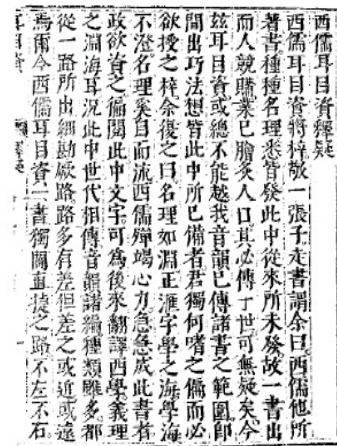 西儒耳目資釋疑
西儒耳目資將梓敬一張子走書謂余曰西儒他所
著書種種名理悉皆發此中從來所未發故一書出
而人競購業已膾炙人口其必傳于世可無疑矣今
茲耳目資或總不能越我音韻已傳諸書之範圍卽
間出巧法想皆此中所已備者君獨何嗜之偏而必
欲授之梓余復之曰名理如淵正滙字學之海學海
不澄名理奚自而流西儒殫竭心力急急成此書者
政欲資之徧閱此中文字可為後來翻譯西學義理
之淵海耳況此中世代相傳音韻諸編種類雖多都
從一路所出細勘厥路路多有差但差之或近或遠
焉爾今西儒耳目資一書獨闢直捷之路不左不右
耳目資 釋疑